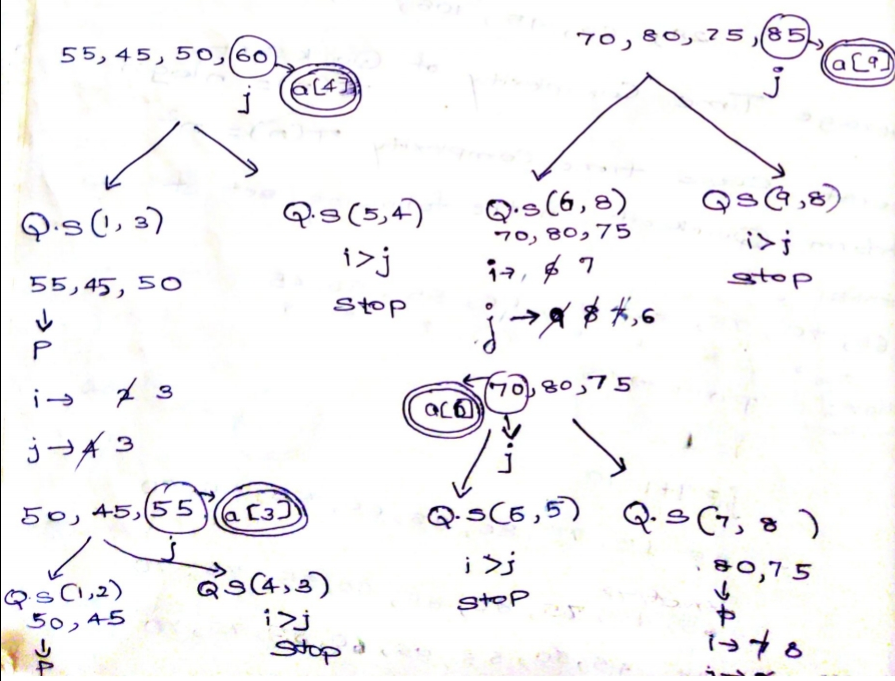 55, 45, 50, 60
a[4]
j
Q.S(1, 3)
55, 45, 50
P
i→ 2 3
j→ 4 3
50, 45, 55
a[3]
j
Q.S(1,2)
50, 45
P
QS(4,3)
i>j
stop
Q.S(5,4)
i>j
stop
70, 80, 75, 85
a[9]
j
Q.S(6, 8)
70, 80, 75
i→, 6 7
j→ 9 8 7,6
70, 80, 75
a[6]
j
Q.S(6,5)
i>j
stop
Q.S(7, 8)
80, 75
P
i→ 7 8
QS(9,8)
i>j
stop